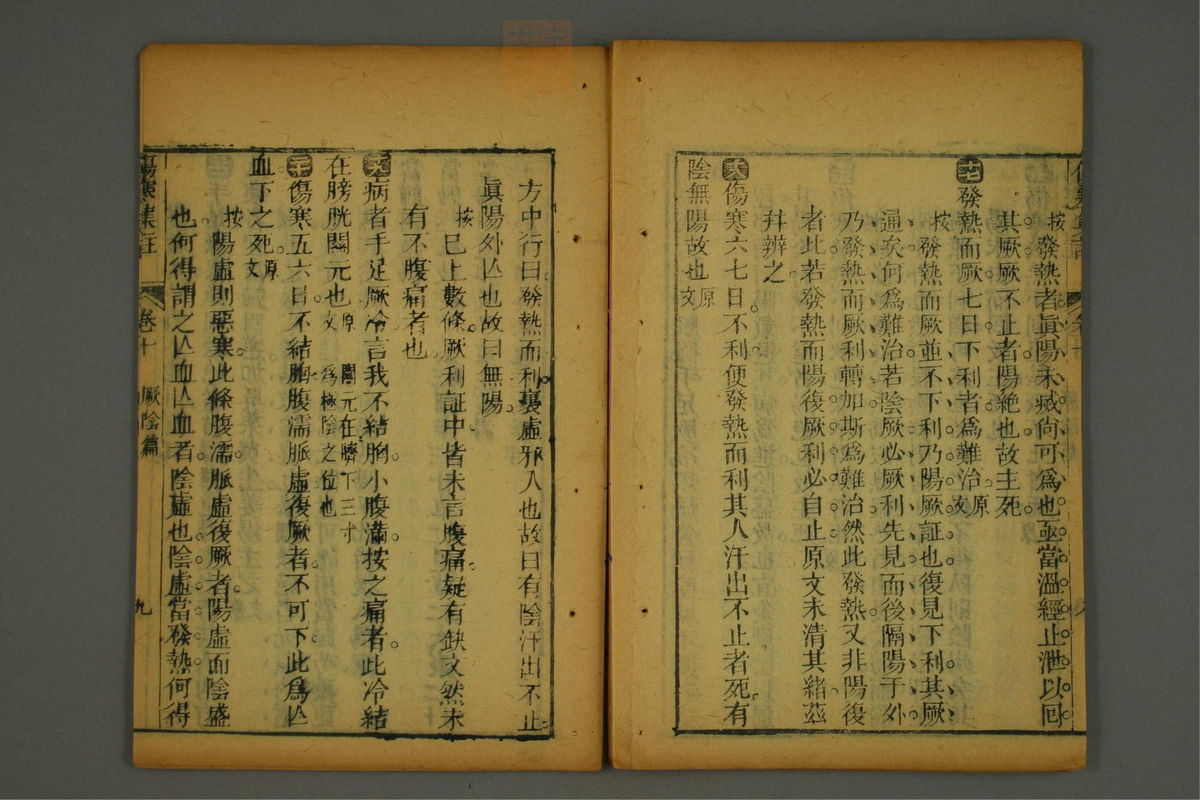 按發熱者眞陽未㓕尙可爲也亟當溫經止泄以回
其厥厥不止者陽絶也故主死
十七發熱而厥七日下利者爲難治原文
按發熱而厥並不下利乃陽厥証也復見下利其厥
逼矣何爲難治若陰厥必厥利先見而後隔陽于外
乃發熱而厥利轉加斯爲難治然此發熱又非陽復
者比若發熱而陽復厥利必自止原文未清其緒茲
爲辨之
十八傷寒六七日不利便發熱而利其人汗出不止者死有
陰無陽故也原文
方中行曰發熱而利裏虛邪入也故曰有陰汗出不止
眞陽外亾也故曰無陽
按已上數條厥利証中皆未言腹痛疑有缺文然未
有不腹痛者也
十九病者手足厥冷言我不結胸小腹滿按之痛者此冷結
在膀胱關元也原文 關元在臍下三寸爲極陰之位也
二十傷寒五六日不結胸腹濡脈虛復厥者不可下此爲亾
血下之死原文
按陽虛則惡寒此條腹濡脈虛復厥者陽虛而陰盛
也何得謂之亾血亾血者陰虛也陰虛當發熱何得
傷寒集註 卷十 厥陰篇 九